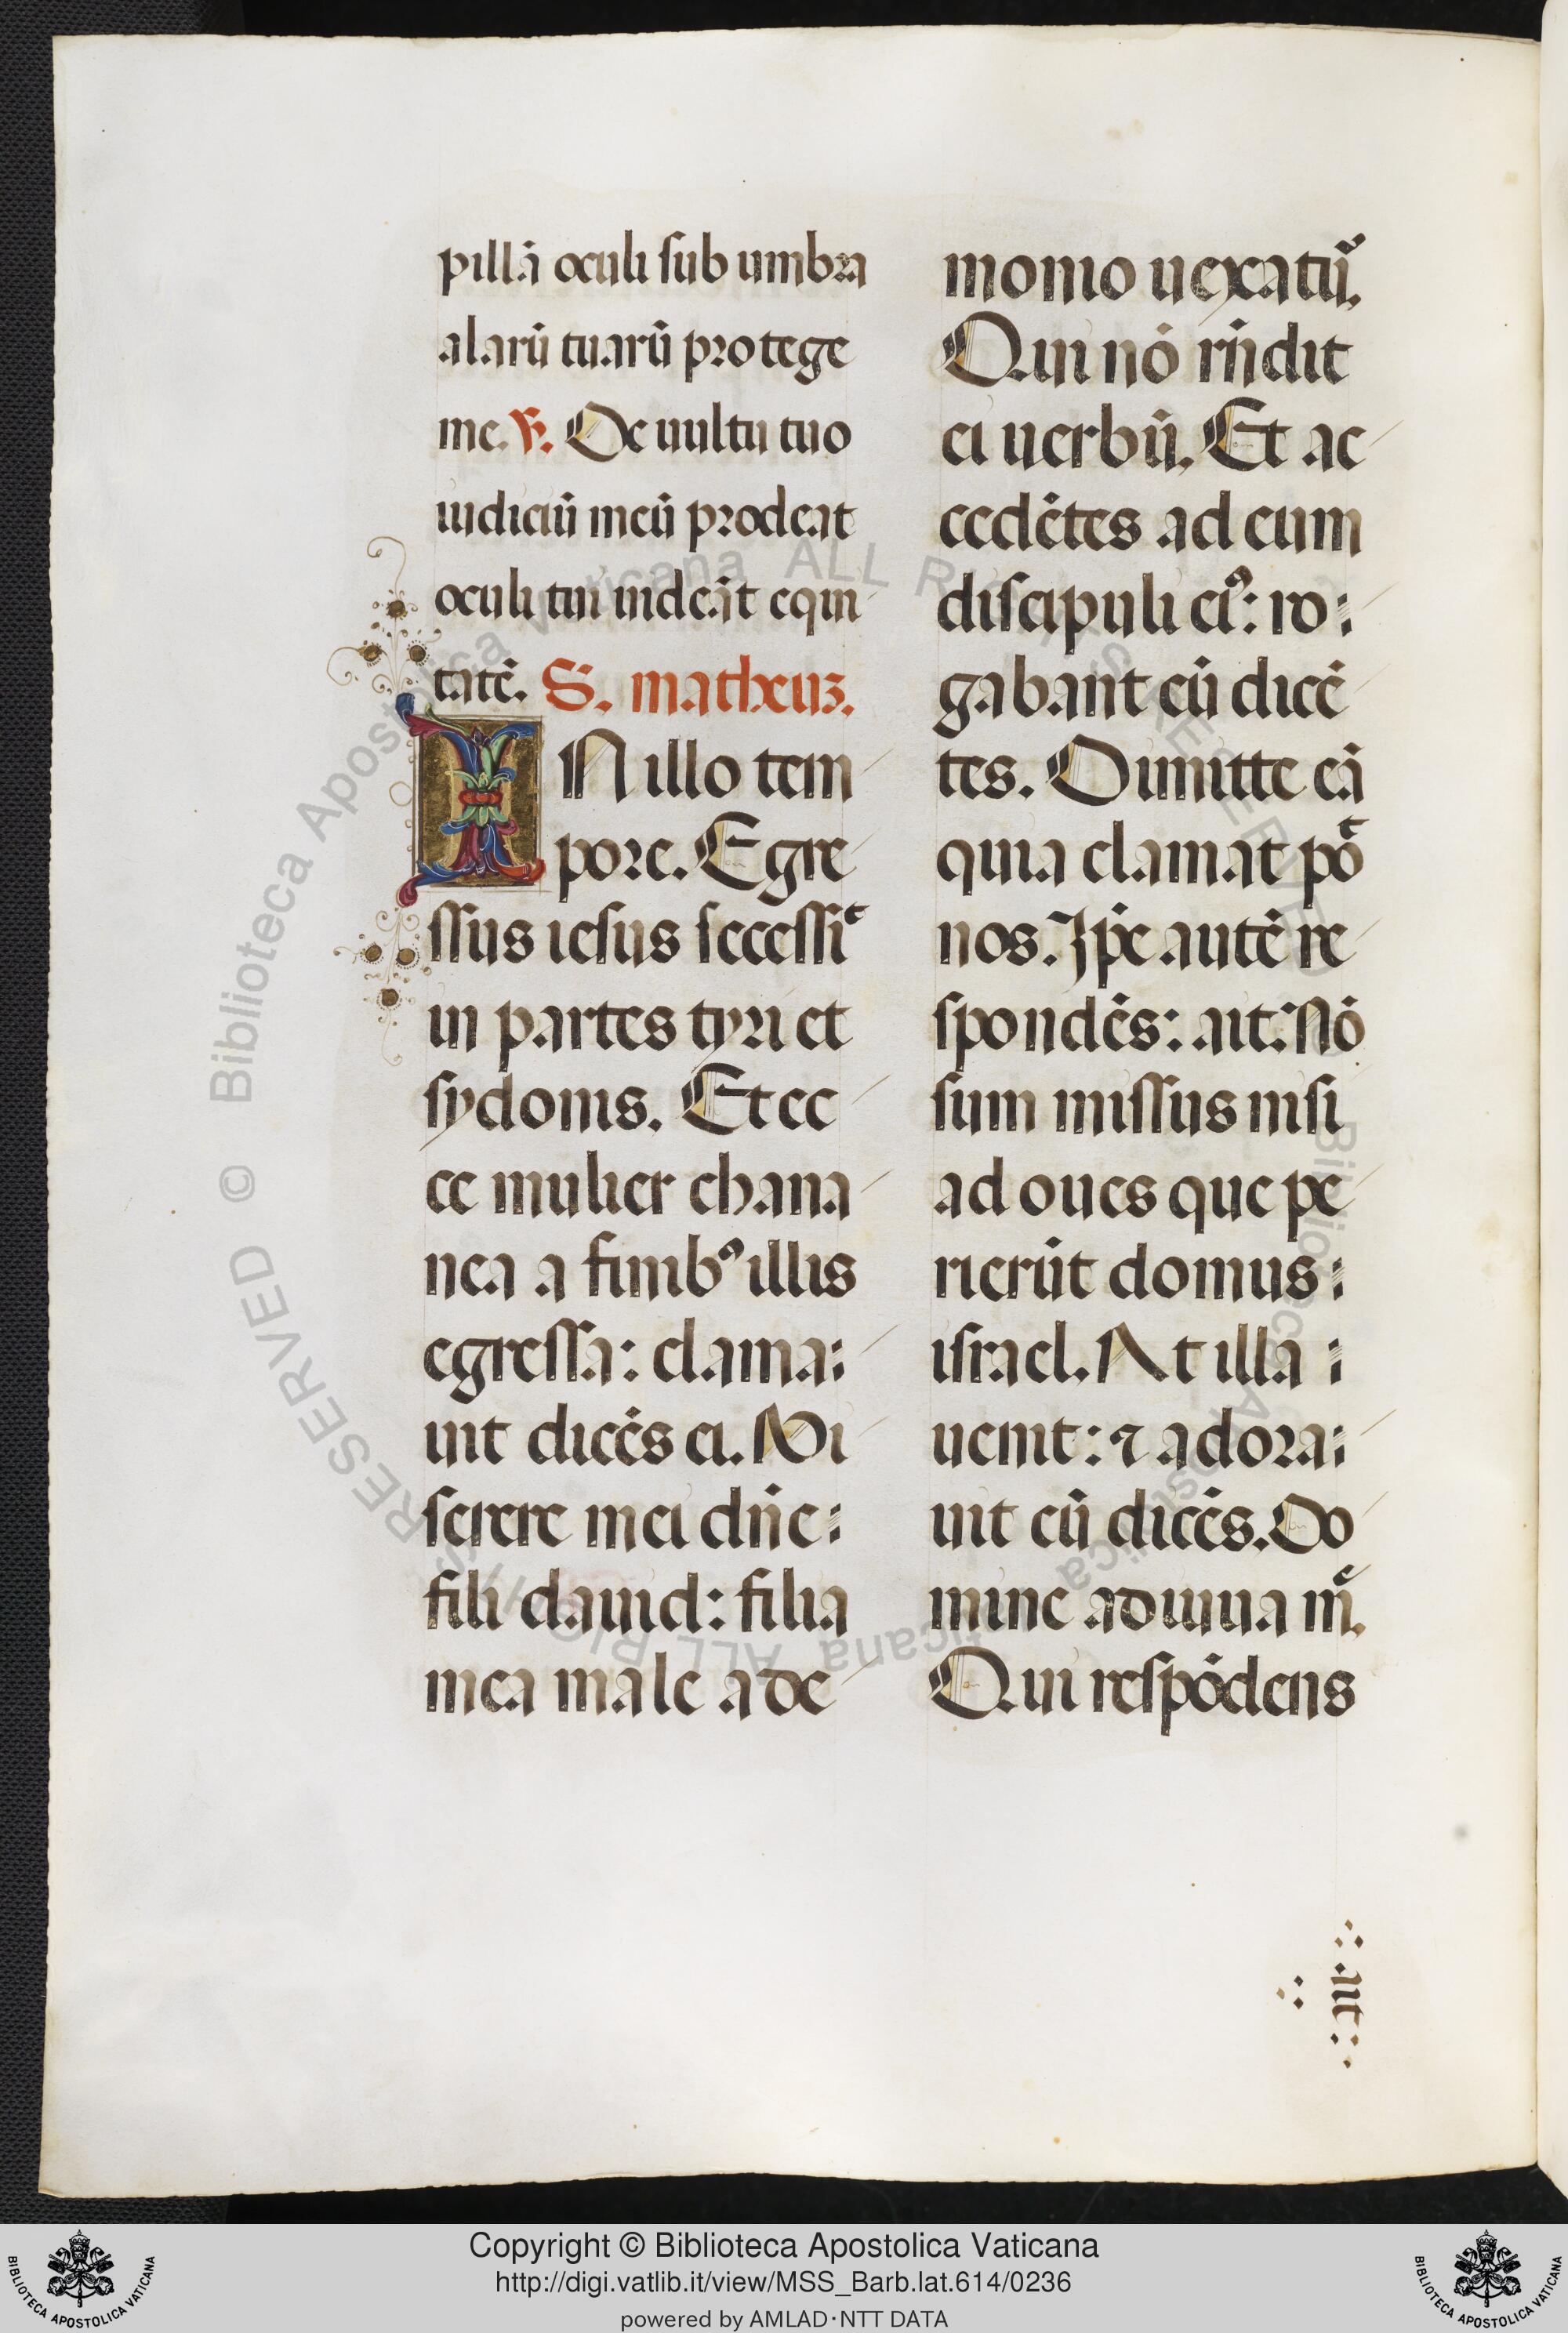 pillā oculi sub umbra
alarū tuarū protege
me. ꝟ. De uultu tuo
iudiciū meū prodeat
oculi tui uideāt equi
tatē. S. matheuꝫ.
IN illo tem
pore. Egre
ssus iesus secessiᵗ
in partes tyri et
sydonis. Et ec
ce mulier chana
nea a finibꝰ illis
egressa: clama:
uit dicēs ei. Mi
serere mei dn̄e:
fili dauid: filia
mea male a de
monio uexatur̃.
Qui nō rn̄dit
ei uerbū. Et ac
cedētes ad eum
discipuli eiꝰ: ro:
gabant eū dicē
tes. Dimitte eā
quia clamat poᵗ
nos. Ip̄e autē re
spondēs: ait. Nō
sum missus nisi
ad oues que pe
rierūt domus:
israel. At illa :
uenit: ⁊ adora:
uit eū dicēs. Do
mine adiuua m̄.
Qui respōdens
ait
© Biblioteca Apostolica Vaticana ALL RIGHTS RESERVED
Copyright © Biblioteca Apostolica Vaticana
http://digi.vatlib.it/view/MSS_Barb.lat.614/0236
powered by AMLAD·NTT DATA
BIBLIOTECA APOSTOLICA VATICANA
BIBLIOTECA APOSTOLICA VATICANA